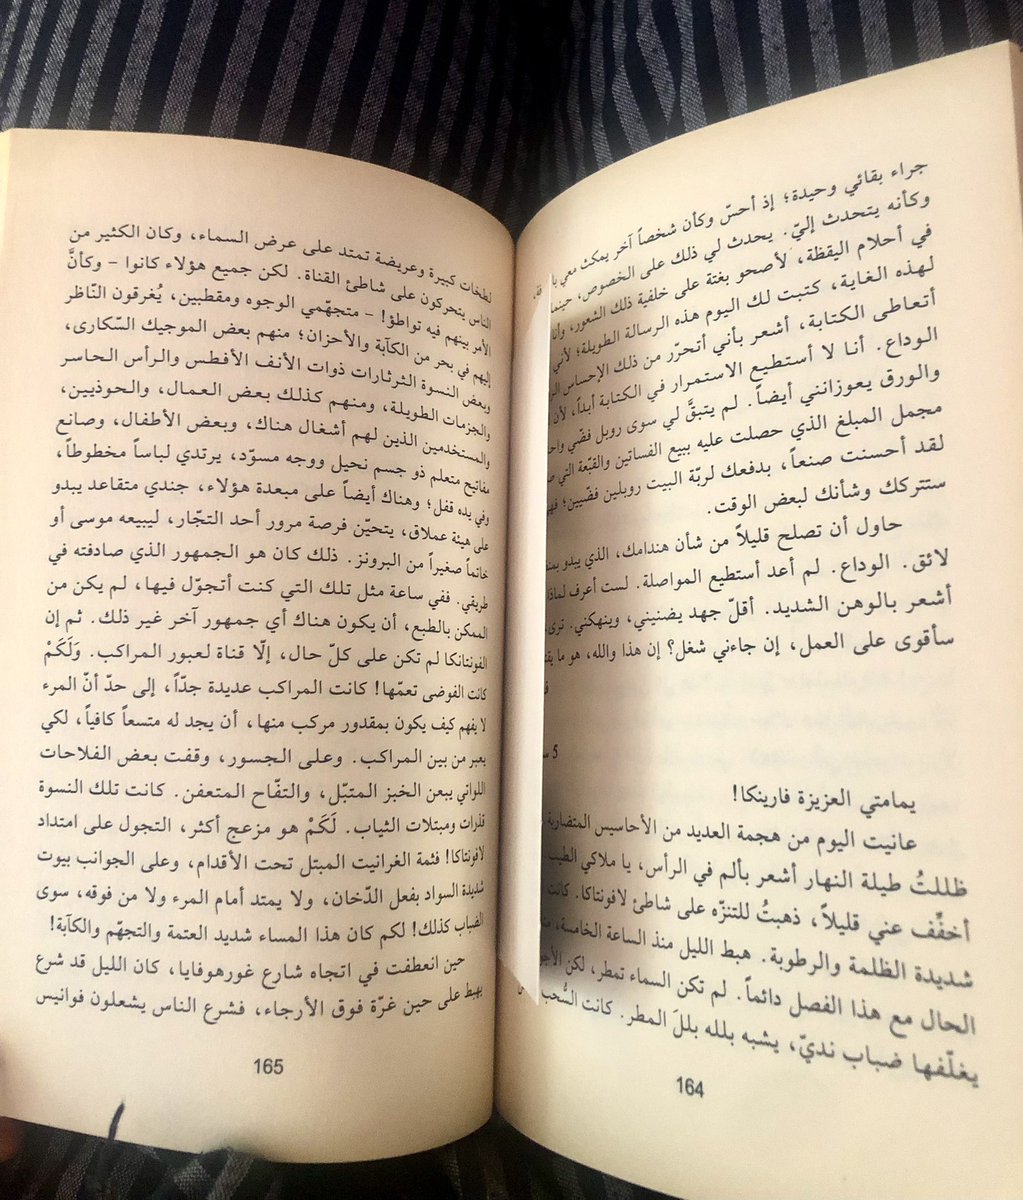 جراء بقائي وحيدة؛ إذ أحسّ وكأن شخصاً آخر يمكث معي
وكأنه يتحدث إليّ. يحدث لي ذلك على الخصوص، حينما
في أحلام اليقظة، لأصحو بغتة على خلفية ذلك الشعور، وأنا
لهذه الغاية، كتبت لك اليوم هذه الرسالة الطويلة؛ لأني
أتعاطى الكتابة، أشعر بأني أتحرّر من ذلك الإحساس
الوداع. أنا لا أستطيع الاستمرار في الكتابة أبداً، لأن
والورق يعوزانني أيضاً. لم يتبقَّ لي سوى روبل فضّي
مجمل المبلغ الذي حصلت عليه ببيع الفساتين والقبّعة التي
لقد أحسنت صنعاً، بدفعك لربّة البيت روبلين فضّيين؛
ستتركك وشأنك لبعض الوقت.
حاول أن تصلح قليلاً من شأن هندامك، الذي يبدو
لائق. الوداع. لم أعد أستطيع المواصلة. لست أعرف لماذا
أشعر بالوهن الشديد. أقلّ جهد يضنيني، وينهكني. ترى،
سأقوى على العمل، إن جاءني شغل؟ إن هذا والله، هو ما
5
يمامتي العزيزة فارينكا!
عانيت اليوم من هجمة العديد من الأحاسيس المتضاربة
ظللتُ طيلة النهار أشعر بألم في الرأس، يا ملاكي الطيب
أخفّف عني قليلاً، ذهبتُ للتنزّه على شاطئ لافونتاكا. كانت
شديدة الظلمة والرطوبة. هبط الليل منذ الساعة الخامسة،
الحال مع هذا الفصل دائماً. لم تكن السماء تمطر، لكن
يغلّفها ضباب نديّ، يشبه بلله بللَ المطر. كانت السُّحب
164
لطخات كبيرة وعريضة تمتد على عرض السماء، وكان الكثير من
الناس يتحركون على شاطئ القناة. لكن جميع هؤلاء كانوا – وكأنَّ
الأمر بينهم فيه تواطؤ! – متجهّمي الوجوه ومقطبين، يُغرقون النّاظر
إليهم في بحر من الكآبة والأحزان؛ منهم بعض الموجيك السّكارى،
وبعض النسوة الثرثارات ذوات الأنف الأفطس والرأس الحاسر
والجزمات الطويلة، ومنهم كذلك بعض العمال، والحوذيين،
والمستخدمين الذين لهم أشغال هناك، وبعض الأطفال، وصانع
مفاتيح متعلم ذو جسم نحيل ووجه مسوّد، يرتدي لباساً مخطوطاً،
وفي يده قفل؛ وهناك أيضاً على مبعدة هؤلاء، جندي متقاعد يبدو
على هيئة عملاق، يتحيّن فرصة مرور أحد التجّار، ليبيعه موسى أو
خاتماً صغيراً من البرونز. ذلك كان هو الجمهور الذي صادفته في
طريقي. ففي ساعة مثل تلك التي كنت أتجوّل فيها، لم يكن من
الممكن بالطبع، أن يكون هناك أي جمهور آخر غير ذلك. ثم إن
الفونتانكا لم تكن على كلّ حال، إلّا قناة لعبور المراكب. وَلَكَمْ
كانت الفوضى تعمّها! كانت المراكب عديدة جدّاً، إلى حدّ أنّ المرء
لا يفهم كيف يكون بمقدور مركب منها، أن يجد له متسعاً كافياً، لكي
يعبر من بين المراكب. وعلى الجسور، وقفت بعض الفلاحات
اللواتي يبعن الخبز المتبّل، والتفّاح المتعفن. كانت تلك النسوة
قذرات ومبتلات الثياب. لَكَمْ هو مزعج أكثر، التجول على امتداد
لافونتاكا! فثمة الغرانيت المبتل تحت الأقدام، وعلى الجوانب بيوت
شديدة السواد بفعل الدّخان، ولا يمتد أمام المرء ولا من فوقه، سوى
الضباب كذلك! لكم كان هذا المساء شديد العتمة والتجهّم والكآبة!
حين انعطفت في اتجاه شارع غورهوفايا، كان الليل قد شرع
يهبط على حين غرّة فوق الأرجاء، فشرع الناس يشعلون فوانيس
165